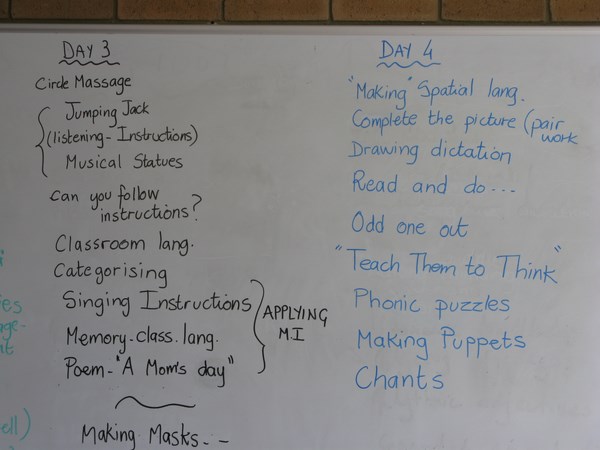 DAY 3
Circle Massage
Jumping Jack
(listening - Instructions)
Musical Statues
Can you follow
instructions?
Classroom lang.
Categorising
Singing Instructions
Memory - class. lang.
Poem - "A Mom's day"
APPLYING
M.I
Making Masks - -
DAY 4
"Making" Spatial lang.
Complete the picture (pair
work
Drawing dictation
Read and do...
Odd one out
"Teach Them to Think"
Phonic puzzles
Making Puppets
Chants